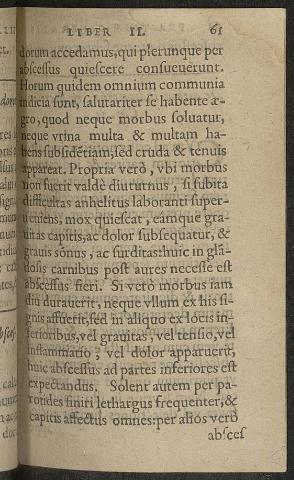 LIBER II. 61
dorum accedamus, qui plerunque per
abscessus quiescere consueuerunt.
Horum quidem omnium communia
indicia sunt, salutariter se habente æ-
gro, quod neque morbus soluatur,
neque vrina multa & multam ha-
bens subsidẽtiam, sed cruda & tenuis
appareat. Propria verò, vbi morbus
non fuerit valde diuturnus, si subita
difficultas anhelitus laboranti super-
ueniens, mox quiescat, eámque gra-
uitas capitis, ac dolor subsequatur, &
grauis sonus, ac surditas: huic in glã-
dosis carnibus post aures necesse est
abscessus fieri. Si verò morbus iam
diu durauerit, neque vllum ex his si-
gnis affuerit, sed in aliquo ex locis in-
ferioribus, vel grauitas, vel tensio, vel
inflammatio, vel dolor apparuerit,
huic abscessus ad partes inferiores est
expectandus. Solent autem per pa-
rotides finiri lethargus frequenter, &
capitis affectus omnes: per alios verò
absces